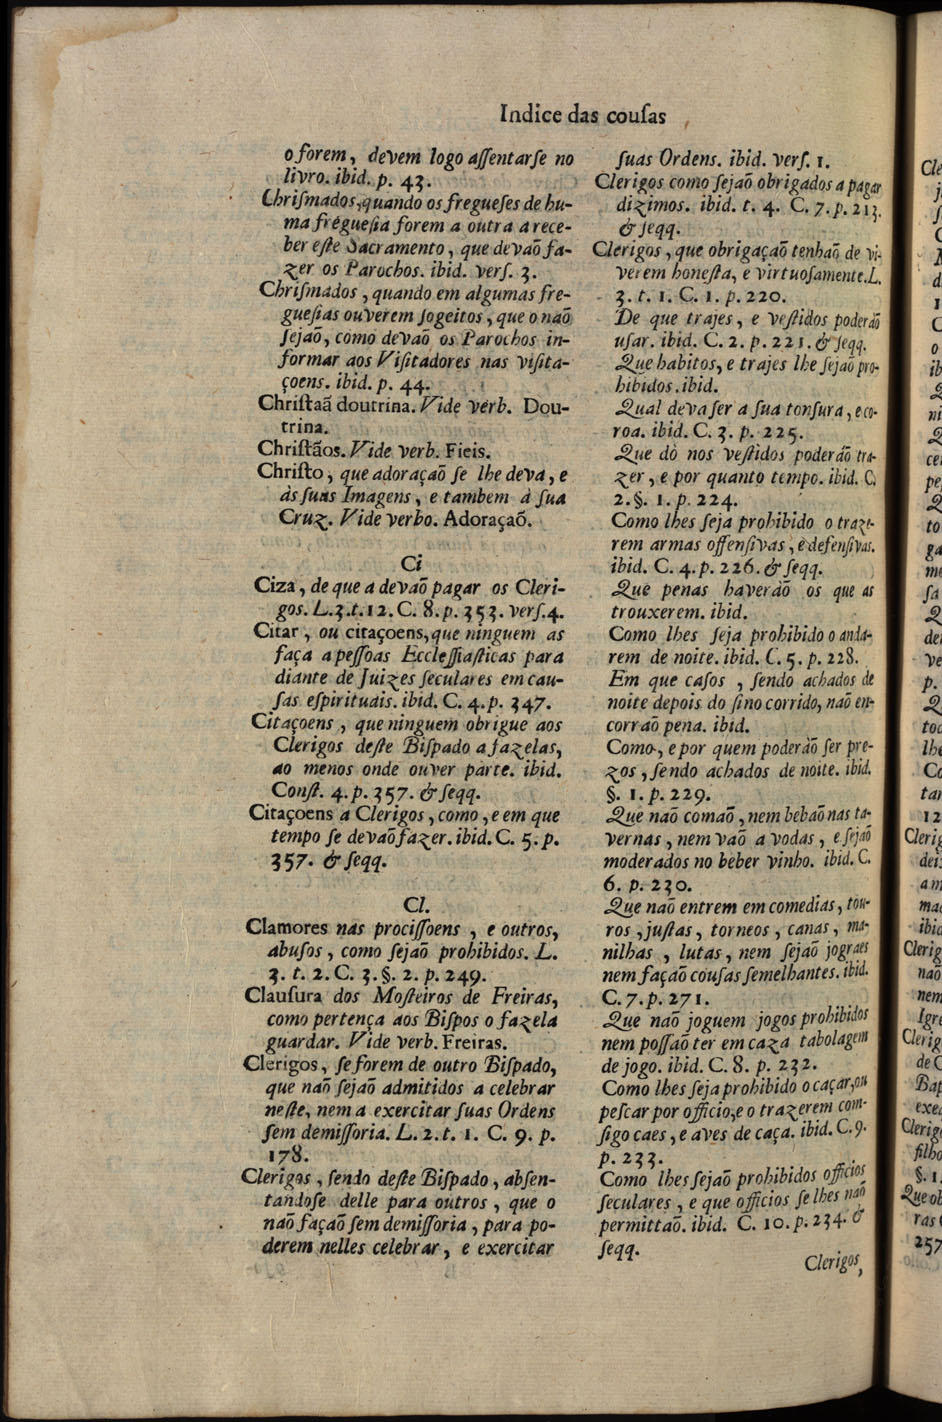 Indice das couſas
o forem, devem logo aſſentarſe no
livro. ibid. p. 43.
Chriſmados, quando os freguеſes de hu-
ma fréguеſia forem a outra a rece-
ber eſte Sacramento, que devaõ fa-
zer os Parochos. ibid. verſ. 3.
Chriſmados, quando em algumas fre-
gueſias ouverem ſogeitos, que o naõ
ſejaõ, como devaõ os Parochos in-
formar aos Viſitadores nas viſita-
çoens. ibid. p. 44.
Chriſtaã doutrina. Vide verb. Dou-
trina.
Chriſtãos. Vide verb. Fieis.
Chriſto, que adoraçaõ ſe lhe deva, e
às ſuas Imagens, e tambem à ſua
Cruz. Vide verbo. Adoraçaõ.
Ci
Ciza, de que a devaõ pagar os Cleri-
gos. L. 3. t. 12. C. 8. p. 353. verſ. 4.
Citar, ou citaçoens, que ninguem as
faça a peſſoas Eccleſſiaſticas para
diante de Juizes ſeculares em cau-
ſas eſpirituais. ibid. C. 4. p. 347.
Citaçoens, que ninguem obrigue aos
Clerigos deſte Biſpado a fazelas,
ao menos onde ouver parte. ibid.
Conſt. 4. p. 357. & ſeqq.
Citaçoens a Clerigos, como, e em que
tempo ſe devaõ fazer. ibid. C. 5. p.
357. & ſeqq.
Cl.
Clamores nas prociſſoens, e outros,
abuſos, como ſejaõ prohibidos. L.
3. t. 2. C. 3. §. 2. p. 249.
Clauſura dos Moſteiros de Freiras,
como pertença aos Biſpos o fazela
guardar. Vide verb. Freiras.
Clerigos, ſe forem de outro Biſpado,
que naõ ſejaõ admitidos a celebrar
neſte, nem a exercitar ſuas Ordens
ſem demiſſoria. L. 2. t. 1. C. 9. p.
178.
Clerigos, ſendo deſte Biſpado, abſen-
tandoſe delle para outros, que o
naõ façaõ ſem demiſſoria, para po-
derem nelles celebrar, e exercitar
ſuas Ordens. ibid. verſ. 1.
Clerigos como ſejaõ obrigados a pagar
dizimos. ibid. t. 4. C. 7. p. 213.
& ſeqq.
Clerigos, que obrigaçaõ tenhaõ de vi-
verem honeſta, e virtuoſamente. L.
3. t. 1. C. 1. p. 220.
De que trajes, e veſtidos poderáõ
uſar. ibid. C. 2. p. 221. & ſeqq.
Que habitos, e trajes lhe ſejaõ pro-
hibidos. ibid.
Qual deva ſer a ſua tonſura, e co-
roa. ibid. C. 3. p. 225.
Que dò nos veſtidos poderáõ tra-
zer, e por quanto tempo. ibid. C.
2. §. 1. p. 224.
Como lhes ſeja prohibido o traze-
rem armas offenſivas, e defenſivas.
ibid. C. 4. p. 226. & ſeqq.
Que penas haveráõ os que as
trouxerem. ibid.
Como lhes ſeja prohibido o anda-
rem de noite. ibid. C. 5. p. 228.
Em que caſos, ſendo achados de
noite depois do ſino corrido, naõ en-
corraõ pena. ibid.
Como, e por quem poderàõ ſer pre-
zos, ſendo achados de noite. ibid.
§. 1. p. 229.
Que naõ comaõ, nem bebaõ nas ta-
vernas, nem vaõ a vodas, e ſejaõ
moderados no beber vinho. ibid. C.
6. p. 230.
Que naõ entrem em comedias, tou-
ros, juſtas, torneos, canas, ma-
nilhas, lutas, nem ſejaõ jograes
nem façaõ couſas ſemelhantes. ibid.
C. 7. p. 271.
Que naõ joguem jogos prohibidos
nem poſſaõ ter em caza tabolagem
de jogo. ibid. C. 8. p. 232.
Como lhes ſeja prohibido o caçar, ou
peſcar por officio, e o trazerem com-
ſigo caes, e aves de caça. ibid. C. 9.
p. 233.
Como lhes ſejaõ prohibidos officios
ſeculares, e que officios ſe lhes naõ
permittaõ. ibid. C. 10. p. 234. &
ſeqq.
Clerigos,